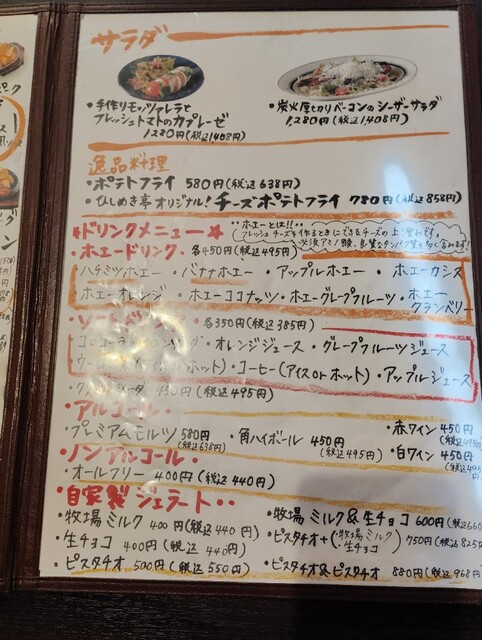 サラダ
・手作りモッツァレラと
フレッシュトマトのカプレーゼ
1280円(税込1,408円)
・炭火厚切りベーコンのシーザーサラダ
1,280円(税込1,408円)
逸品料理
・ポテトフライ 580円(税込638円)
・ひしめき亭オリジナル!チーズポテトフライ 780円(税込858円)
★ドリンクメニュー★
"ホエーとは!!"
フレッシュチーズを作るときにできるチーズの上澄みです。
必須アミノ酸、良質なタンパク質も多く含みます!
・ホエードリンク・各450円(税込495円)
ハチミツホエー・バナナホエー・アップルホエー・ホエーカシス
ホエーオレンジ・ホエーココナッツ・ホエーグレープフルーツ・ホエークランベリー
各350円(税込385円)
オレンジジュース・グレープフルーツジュース
ホット)・コーヒー(アイスorホット)・アップルジュース
450円(税込495円)
・アルコール・
・プレミアムモルツ 580円
(税込638円)
・角ハイボール 450円
(税込495円)
・赤ワイン 450円
(税込495円
・白ワイン 450円
(税込495円
・ノンアルコール・
・オールフリー 400円(税込440円)
・自家製ジェラート・・
・牧場ミルク 400円(税込440円)
・牧場ミルク&生チョコ 600円(税込660
・生チョコ 400円(税込440円)
・ピスタチオ+(・牧場ミルク・生チョコ) 750円(税込825
・ピスタチオ 500円(税込550円)
・ピスタチオ&ピスタチオ 880円(税込968円